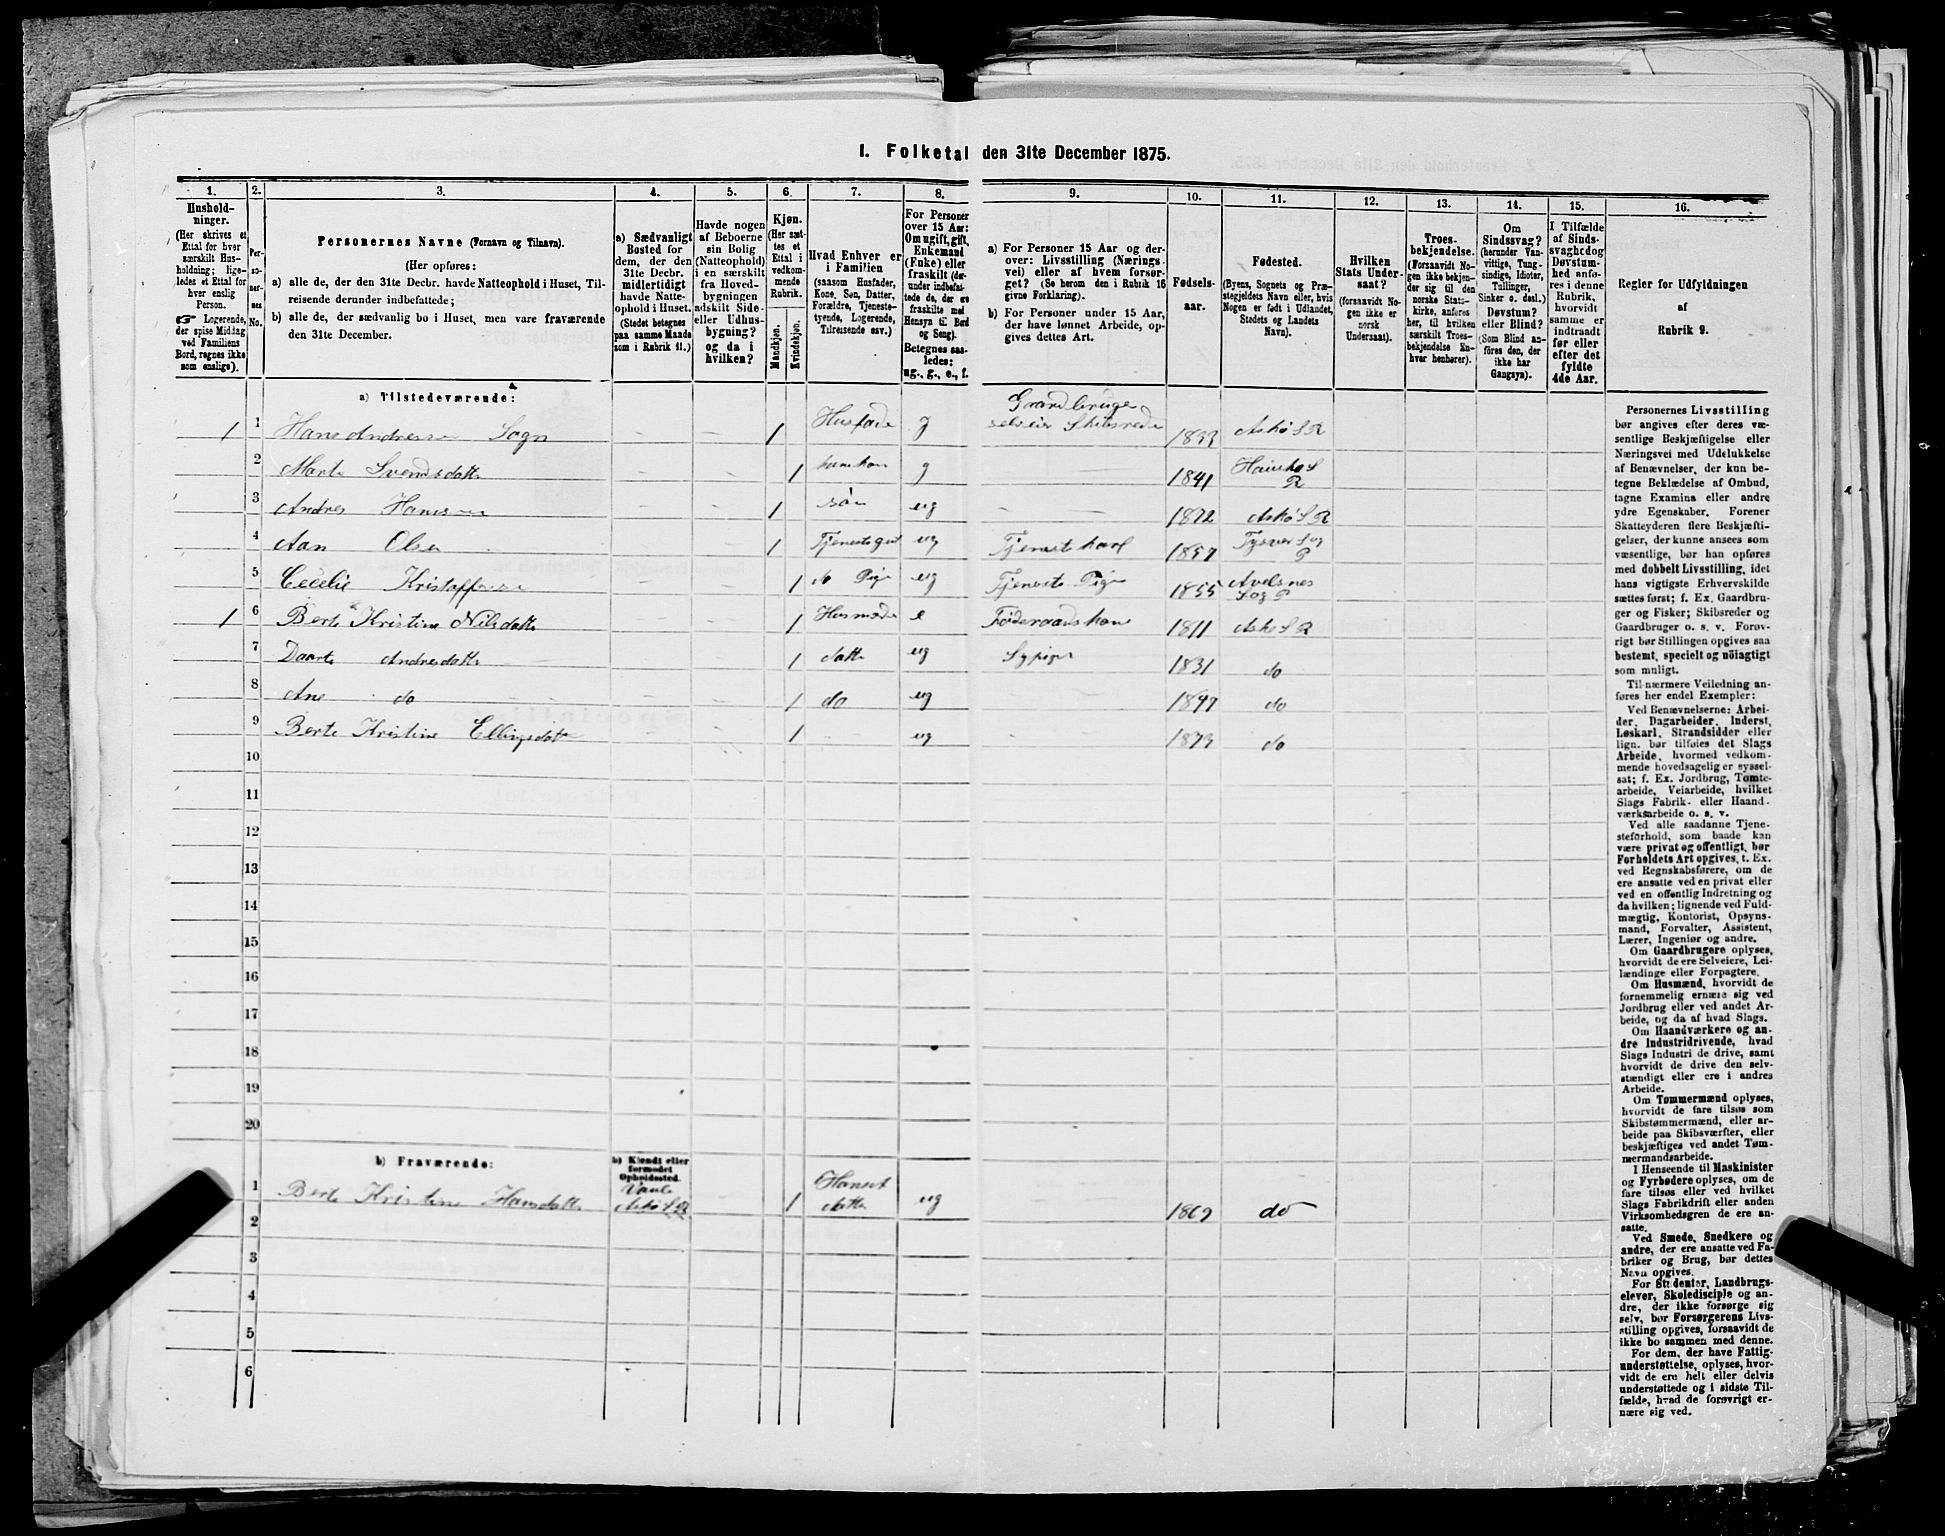 I. Folketal den 31te December 1875.
1. 2. 3. 4. 5. 6. 7. 8. 9. 10. 11. 12. 13. 14. 15. 16.
Hushold-
ninger.
(Her skrives et
Ettal for hver
særskilt Hus-
holdning; lige-
ledes et Ettal for
hver enslig
Person.
☞ Logerende,
der spise Middag
ved Familiens
Bord, regnes ikke
som enslige).
Per-
so-
ner-
nes
No.
Personernes Navne (Fornavn og Tilnavn).
(Her opføres:
a) alle de, der den 31te Decbr. havde Natteophold i Huset, Til-
reisende derunder indbefattede;
b) alle de, der sædvanlig bo i Huset, men vare fraværende
den 31te December.
a) Sædvanligt
Bosted for
dem, der den
31te Decbr.
midlertidigt
havde Natte-
ophold i Huset.
(Stedet betegnes
paa samme Maade
som i Rubrik 11.)
Havde nogen
af Beboerne
sin Bolig
(Natteophold)
i en særskilt
fra Hoved-
bygningen
adskilt Side-
eller Udhus-
bygning?
og da i
hvilken?
Kjøn.
(Her sæt-
tes et
Ettal i
vedkom-
mende
Rubrik.
Mandkjøn.
Kvindekjøn.
Hvad Enhver er
i Familien
(saasom Husfader,
Kone, Søn, Datter,
Forældre, Tjeneste-
tyende, Logerende,
Tilreisende osv.)
For Personer
over 15 Aar:
Om ugift, gift,
Enkemand
(Enke) eller
fraskilt (der-
under indbefat-
tede de, der ere
fraskilte med
Hensyn til Bord
og Seng).
Betegnes saa-
ledes:
ug., g., e., f.
a) For Personer 15 Aar og der-
over: Livsstilling (Nærings-
vei) eller af hvem forsør-
get? (Se herom den i Rubrik 16
givne Forklaring).
b) For Personer under 15 Aar,
der have lønnet Arbeide, op-
gives dettes Art.
Fødsels-
aar.
Fødested.
(Byens, Sognets og Præ-
stegjeldets Navn eller, hvis
Nogen er født i Udlandet,
Stedets og Landets
Navn).
Hvilken
Stats Under-
saat?
(forsaavidt No-
gen ikke er
norsk
Undersaat).
Troes-
bekjendelse.
(Forsaavidt No-
gen ikke bekjen-
der sig til den
norske Stats-
kirke, anføres
her, til hvilken
særskilt Troes-
bekjendelse En-
hver henhører).
Om
Sindssvag?
(herunder Van-
vittige, Tung-
sindige, Idioter,
Tullinger,
Sinker o. desl.)
Døvstum?
eller Blind?
(Som Blind an-
føres den, der
ikke har
Gangsyn).
I Tilfælde
af Sinds-
svaghed og
Døvstum-
hed anfø-
res i denne
Rubrik,
hvorvidt
samme er
indtraadt
før eller
efter det
fyldte
4de Aar.
Regler for Udfyldningen
af
Rubrik 9.
a) Tilstedeværende:
1 1 Hans Andresen Sogn 1 Husfade g Grandbruger selveier Skibsreder 1833 Askø S R
2 Marte Svendsdatt 1 husekone g 1841 Hauske S R
3 Andres Hansen 1 søn ug 1872 Askø S R
4 Aan Olsen 1 Tjenestegut ug Tjenestekarl 1857 Tysver Sog P
5 Cecelie Kristoffersen 1 do Pige ug Tjeneste Pige 1855 Avelsnes Sog P
1 6 Berte Kristine Nilsdatte 1 Husmoder e Föderaadskone 1811 Askø S R
7 Daarte Andresdatte 1 datte ug Sypige 1831 do
8 Ane do 1 do ug 1847 do
9 Berte Kristine Ellingsdatte 1 ug 1873 do
10
11
12
13
14
15
16
17
18
19
20
b) Fraværende:
b) Kjendt eller
formodet
Opholdssted.
1 Berte Kristine Hansdatte Askø S R 1 datte ug 1869 do
2
3
4
5
6
Personernes Livsstilling
bør angives efter deres væ-
sentlige Beskjæftigelse eller
Næringsvei med Udelukkelse
af Benævnelser, der kun be-
tegne Beklædelse af Ombud,
tagne Examina eller andre
ydre Egenskaber. Forener
Skatteyderen flere Beskjæfti-
gelser, der kunne ansees som
væsentlige, bør han opføres
med dobbelt Livsstilling, idet
hans vigtigste Erhvervskilde
sættes først; f. Ex. Gaardbru-
ger og Fisker; Skibsreder og
Gaardbruger o. s. v. Forøv-
rigt bør Stillingen opgives saa
bestemt, specielt og nöiagtigt
som muligt.
Til nærmere Veiledning an-
føres her endel Exempler:
Ved Benævnelserne: Arbei-
der, Dagarbeider, Inderst,
Løskarl, Strandsidder eller
lign. bør tilføies det Slags
Arbeide, hvormed vedkom-
mende hovedsagelig er syssel-
sat; f. Ex. Jordbrug, Tømte-
arbeide, Veiarbeide, hvilket
Slags Fabrik- eller Haand-
værksarbeide o. s. v.
Ved alle saadanne Tjene-
steforhold, som baade kan
være privat og offentligt, bør
Forholdets Art opgives, t. Ex.
ved Regnskabsførere, om de
ere ansatte ved en privat eller
ved en offentlig Indretning og
da hvilken; lignende ved Fuld-
mægtig, Kontorist, Opsyns-
mand, Forvalter, Assistent,
Lærer, Ingeniør og andre.
Om Gaardbrugere oplyses,
hvorvidt de ere Selveiere, Lei-
lændinge eller Forpagtere.
Om Husmænd, hvorvidt de
fornemmelig ernære sig ved
Jordbrug eller ved andet Ar-
beide, og da af hvad Slags.
Om Haandværkere og an-
dre Industridrivende, hvad
Slags Industri de drive, samt
hvorvidt de drive den selv-
stændigt eller ere i andres
Arbeide.
Om Tømmermænd oplyses,
hvorvidt de fare tilsøs som
Skibstømmermænd, eller ar-
beide paa Skibsværfter, eller
beskjæftiges ved andet Tøm-
mermandsarbeide.
I Henseende til Maskinister
og Fyrbødere oplyses, om de
fare tilsøs eller ved hvilket
Slags Fabrikdrift eller anden
Virksomhedsgren de ere an-
satte.
Ved Smede, Snedkere og
andre, der ere ansatte ved Fa-
briker og Brug, bør dettes
Navn opgives.
For Studenter, Landbrugs-
elever, Skoledisciple og an-
dre, der ikke forsørge sig
selv, bør Forsørgerens Livs-
stilling opgives, forsaavidt de
ikke bo sammen med denne.
For dem, der have Fattig-
understøttelse, oplyses, hvor-
vidt de ere helt eller delvis
understøttede og i sidste Til-
fælde, hvad de forøvrigt er-
nære sig ved.